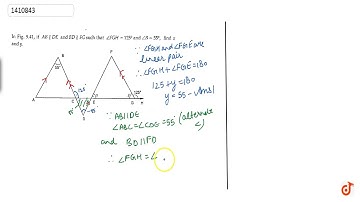 1410843
In Fig. 9.41, if AB || DE and BD || FG such that ∠FGH = 125° and ∠B = 55°, find x
and y.
∵ ∠FGH and ∠FGE are
linear pair
∴ ∠FGH + ∠FGE = 180
125 + y = 180
y = 55 - Ans)
∵ AB||DE
∠ABC = ∠CDE = 55 (alternate
∠)
and BD||FG
∴ ∠FGH = ∠
A
B
C
D
E
F
G
H
55°
125°
doubtnut